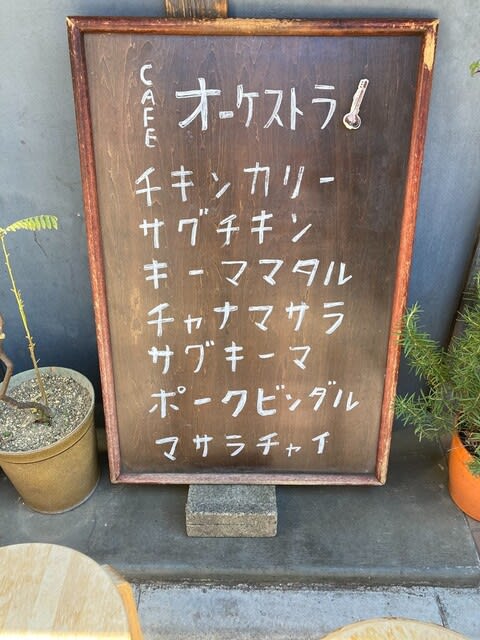 CAFE オーケストラ
チキンカリー
サグチキン
キーママタル
チャナマサラ
サグキーマ
ポークビンダル
マサラチャイ